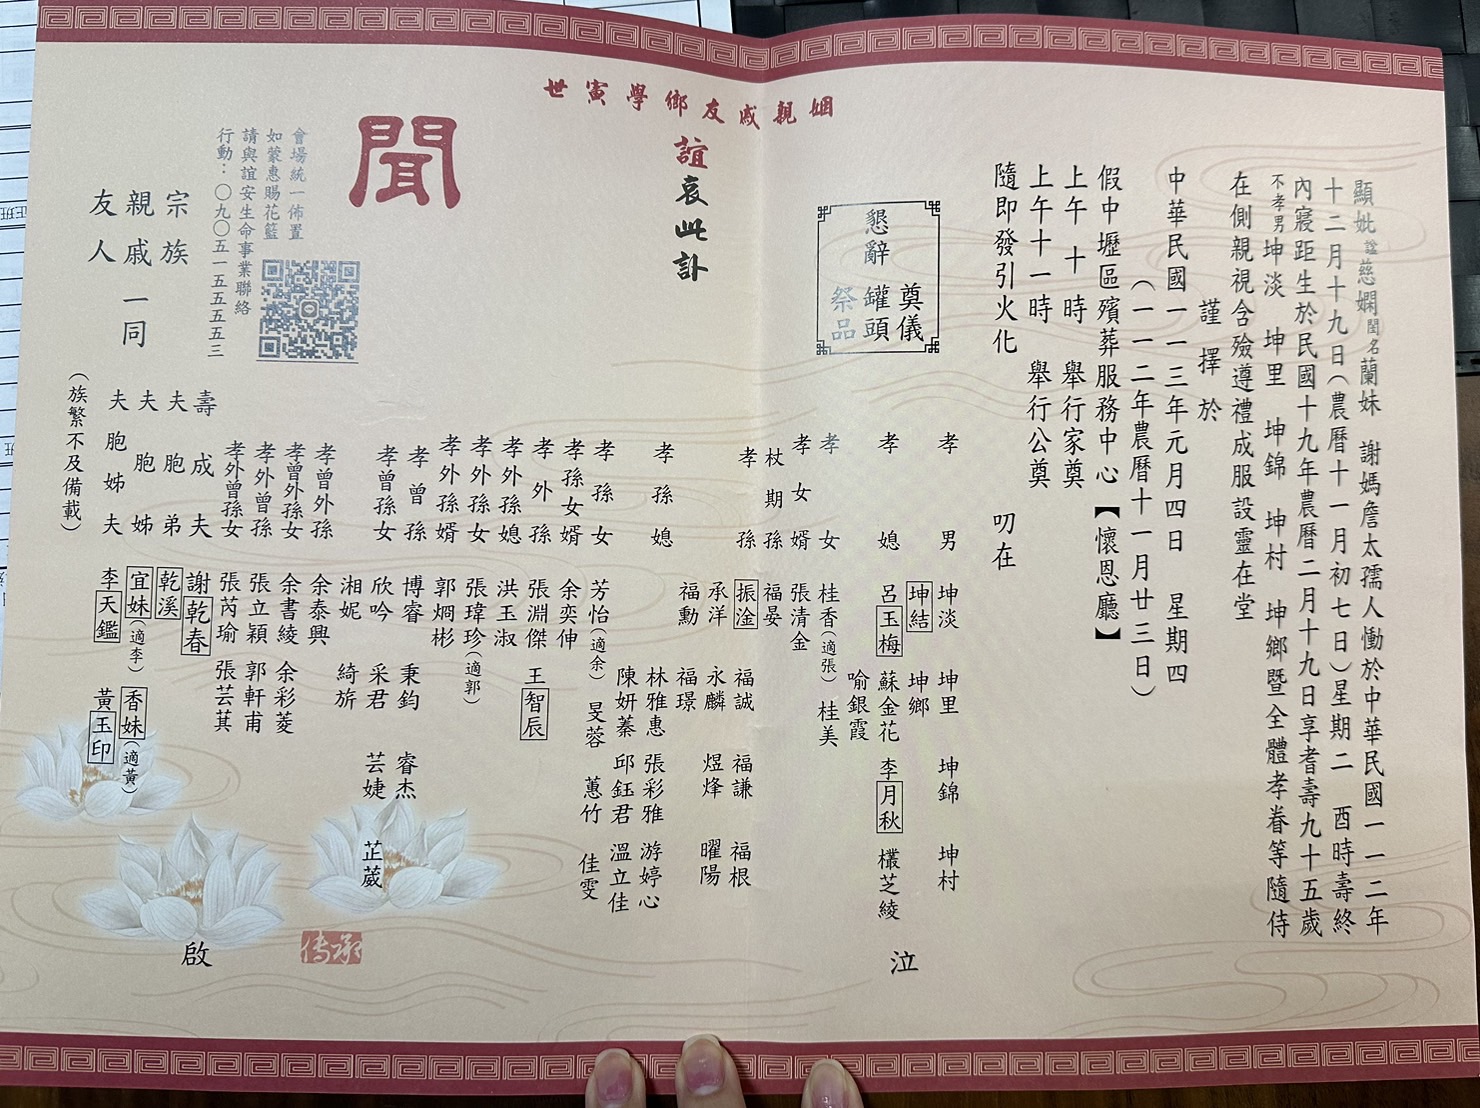 世寅學鄉友戚親姻
顯妣諡慈嫻閨名蘭妹 謝媽詹太孺人慟於中華民國一一二年
十二月十九日(農曆十一月初七日)星期二 酉時壽終
內寢距生於民國十九年農曆二月十九日享耆壽九十五歲
不孝男坤淡 坤里 坤錦 坤村 坤鄉暨全體孝眷等隨侍
在側親視含殮遵禮成服設靈在堂
謹擇於
中華民國一一三年元月四日 星期四
(一一二年農曆十一月廿三日)
假中壢區殯葬服務中心【懷恩廳】
上午十時 舉行家奠
上午十一時 舉行公奠
隨即發引火化 叨在
懇辭
奠儀
罐頭
祭品
誼哀此訃
聞
孝男 坤淡 坤里 坤錦 坤村
坤結 坤鄉
孝媳 呂玉梅 蘇金花 李月秋 欉芝綾
喻銀霞
孝女 桂香(適張) 桂美
孝女婿 張清金
杖期孫 福晏
孝孫 振淦 福誠 福謙 福根
承洋 永麟 煜烽 曜陽
福勳 福璟
孝孫媳 林雅惠 張彩雅 游婷心
陳妍蓁 邱鈺君 溫立佳
孝孫女 芳怡(適余) 旻蓉 蕙竹 佳雯
孝孫女婿 余奕伸
孝外孫 張淵傑 王智辰
孝外孫媳 洪玉淑
孝外孫女 張瑋珍(適郭)
孝外孫婿 郭烱彬
孝曾孫 博睿 秉鈞 睿杰
孝曾孫女 欣吟 采君 芸婕 芷葳
湘妮 綺旂
孝曾外孫 余泰興
孝曾外孫女 余書綾 余彩菱
孝外曾孫 張立穎 郭軒甫
孝外曾孫女 張芮瑜 張芸萁
泣
壽成夫 謝乾春
夫胞弟 乾溪
夫胞姊 宜妹(適李) 香妹(適黃)
夫胞姊夫 李天鑑 黃玉印
(族繁不及備載)
啟
會場統一佈置
如蒙惠賜花籃
請與誼安生命事業聯絡
行動:〇九〇五一五五五五三
宗族
親戚一同
友人
传承